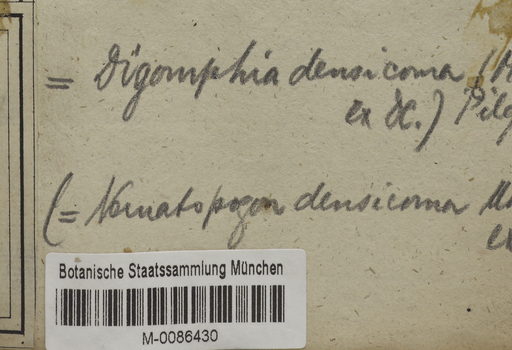 = Digomphia densicoma (M
ex DC.) Pilg
(= Nematopogon densicoma Ma
ex
Botanische Staatssammlung München
M-0086430